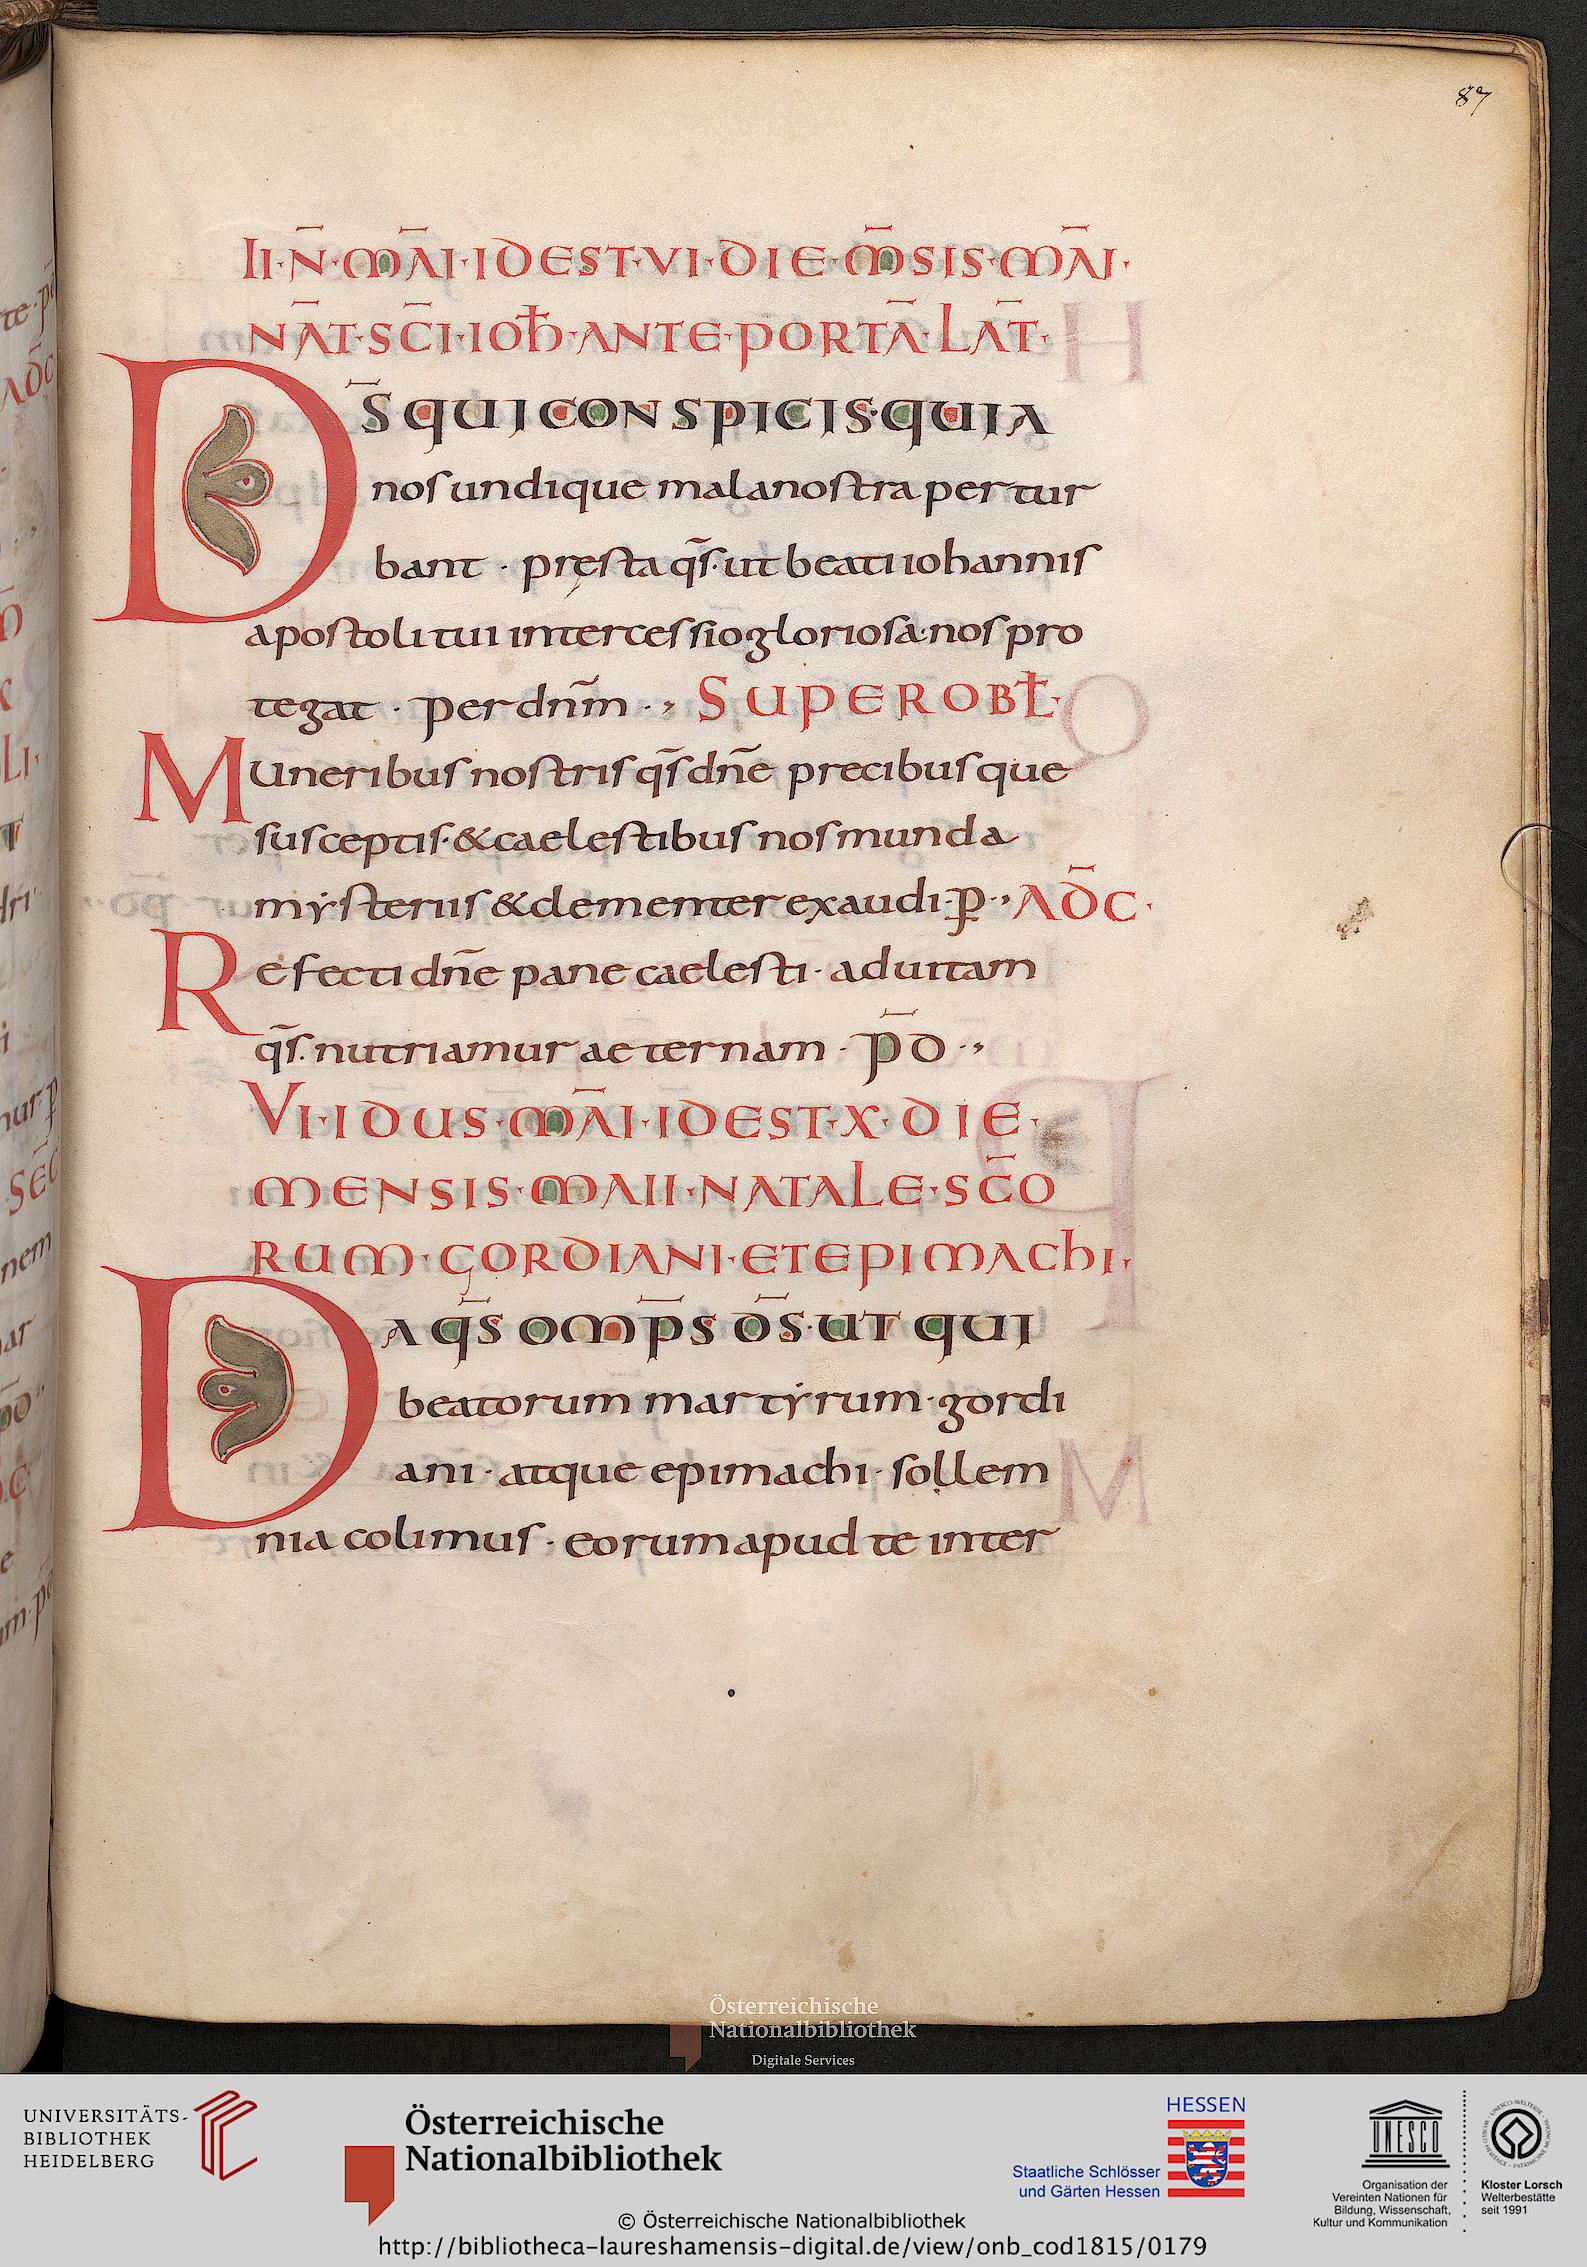 87
II·N̄·MĀI·IDEST·VI·DIE·M̄SIS·MĀI·
NĀT·SC̄I·IOH̄·ANTE·PORTĀ·LAT̄·
DS̄ QUI CONSPICIS·QUIA
nos undique mala nostra pertur
bant · pręsta qs̄· ut beati iohannis
apostoli tui intercessio gloriosa· nos pro
tegat · Per dnm̄ ·, SUPER OBŁ·
Muneribus nostris qs̄ dnē precibusque
susceptis· & caelestibus nos munda
mẏsteriis & clementer exaudi· p̲ ·, AD̄C·
Refecti dnē pane caelesti· ad uitam
qs̄· nutriamur aeternam · P̄D ·,
VI·IDUS·MĀI·IDEST·X·DIE·
MENSIS·MAII·NATALE·SC̄O
RUM·GORDIANI·ET EPIMACHI·
DA QS̄ OMP̄S D̄S·UT QUI
beatorum martẏrum· gordi
ani· atque epimachi· sollem
nia colimus· eorum apud te inter
Österreichische
Nationalbibliothek
Digitale Services
UNIVERSITÄTS-
BIBLIOTHEK
HEIDELBERG
Österreichische
Nationalbibliothek
HESSEN
Staatliche Schlösser
und Gärten Hessen
UNESCO
Organisation der
Vereinten Nationen für
Bildung, Wissenschaft,
Kultur und Kommunikation
Kloster Lorsch
Welterbestätte
seit 1991
© Österreichische Nationalbibliothek
http://bibliotheca-laureshamensis-digital.de/view/onb_cod1815/0179